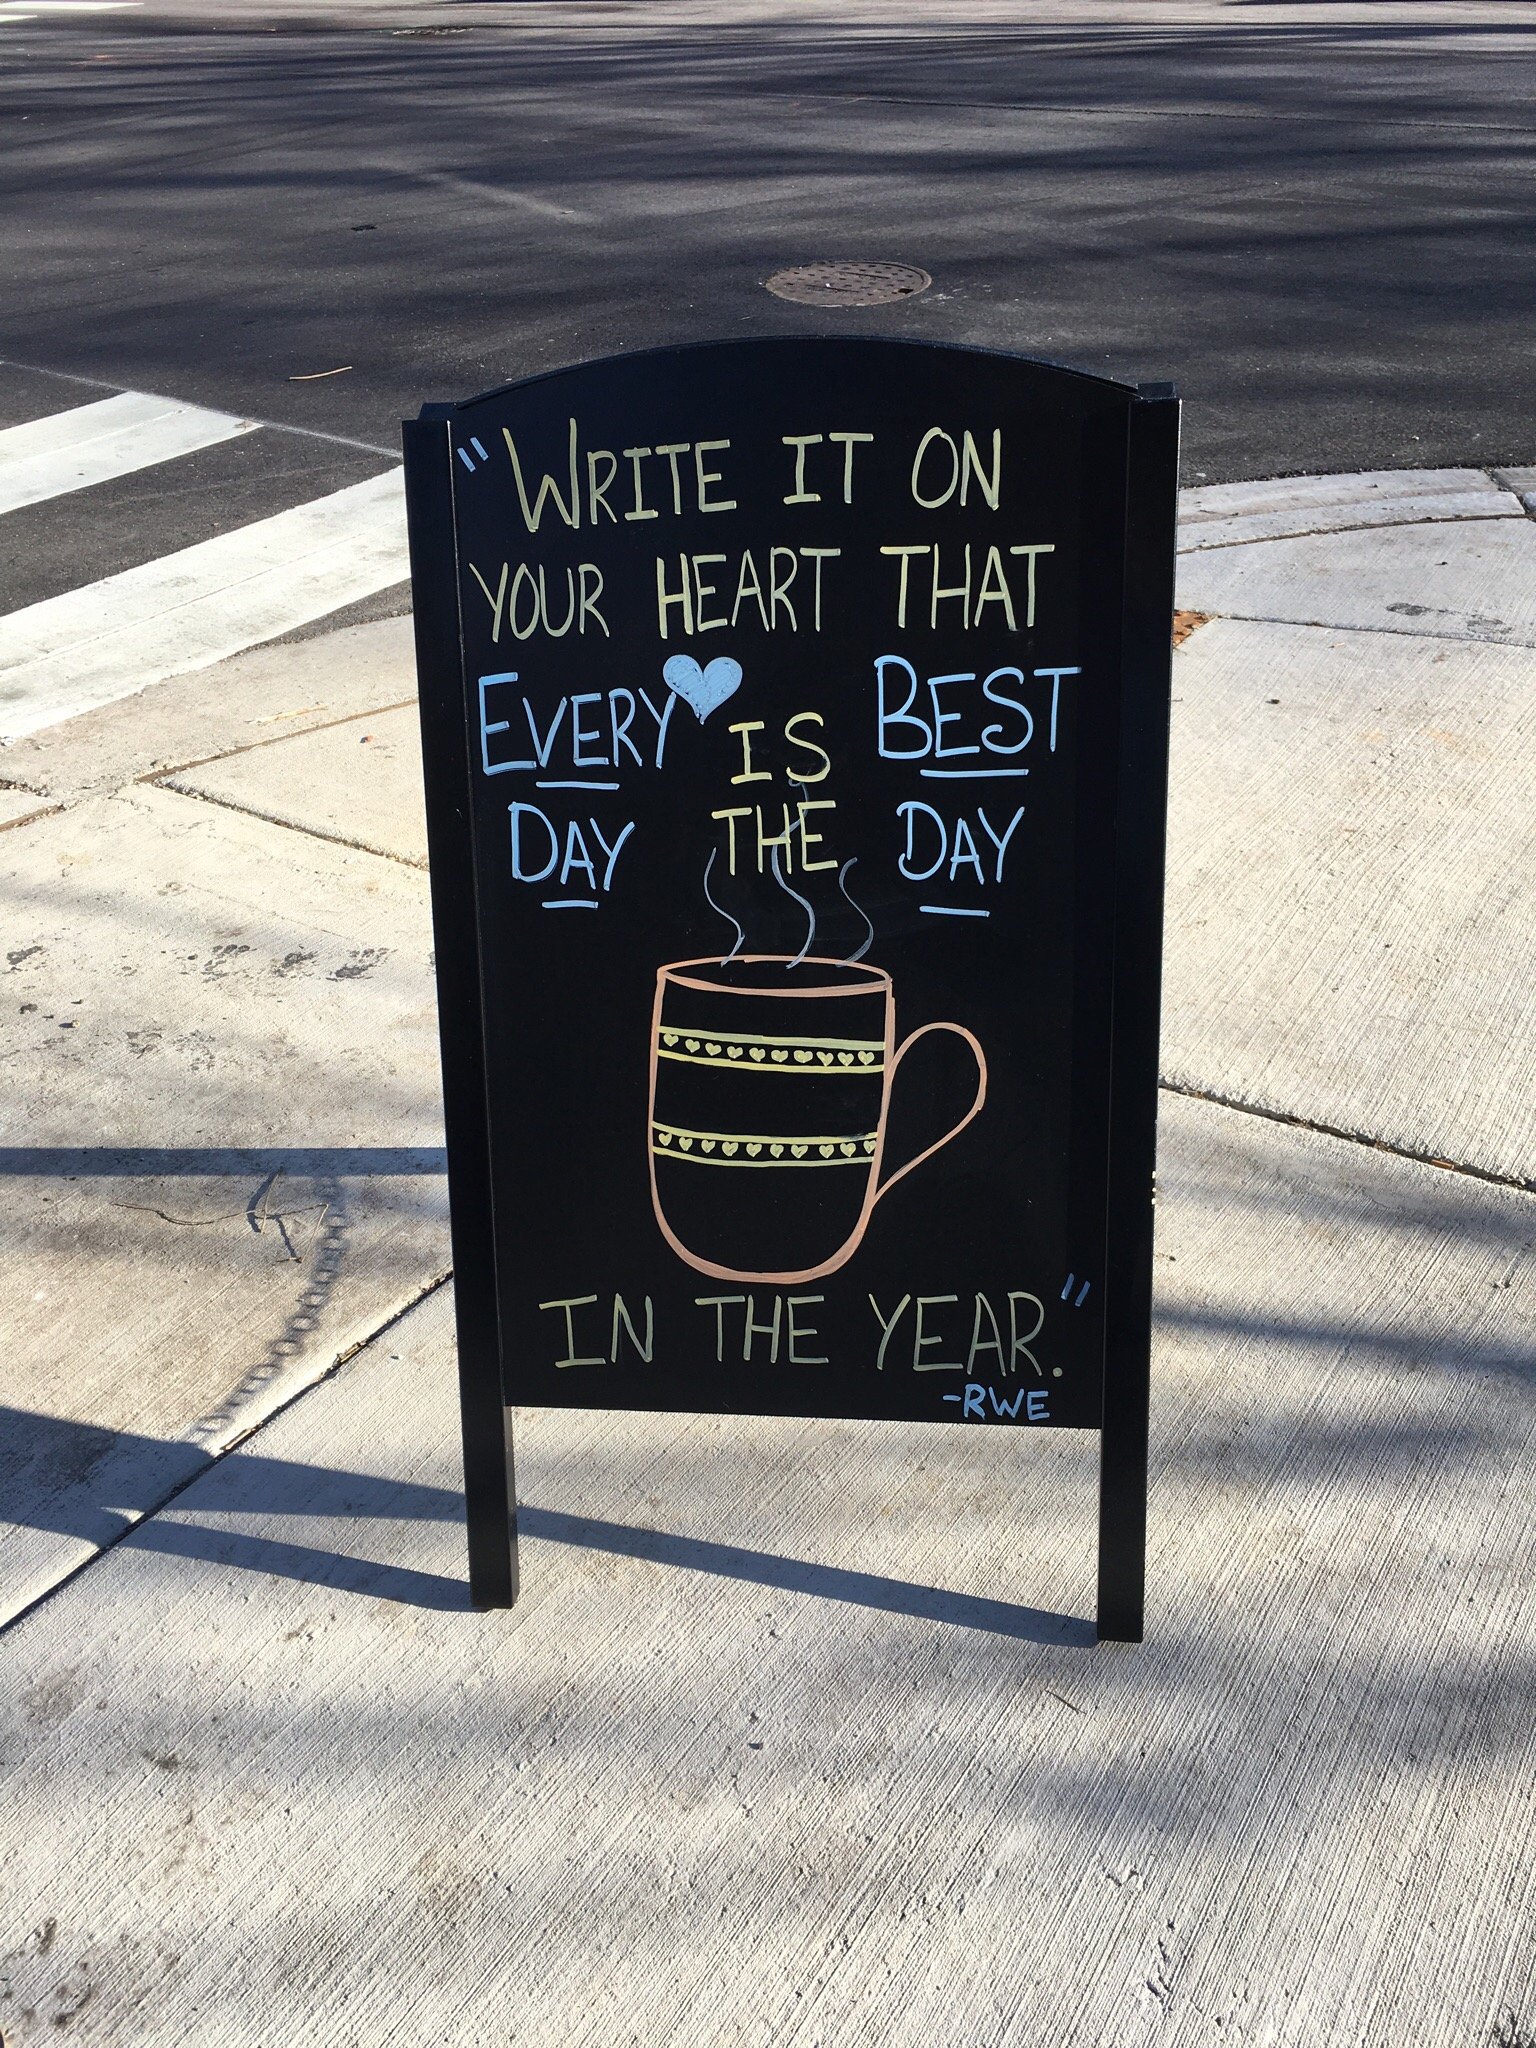 "WRITE IT ON
YOUR HEART THAT
EVERY IS BEST
DAY THE DAY
IN THE YEAR."
-RWE